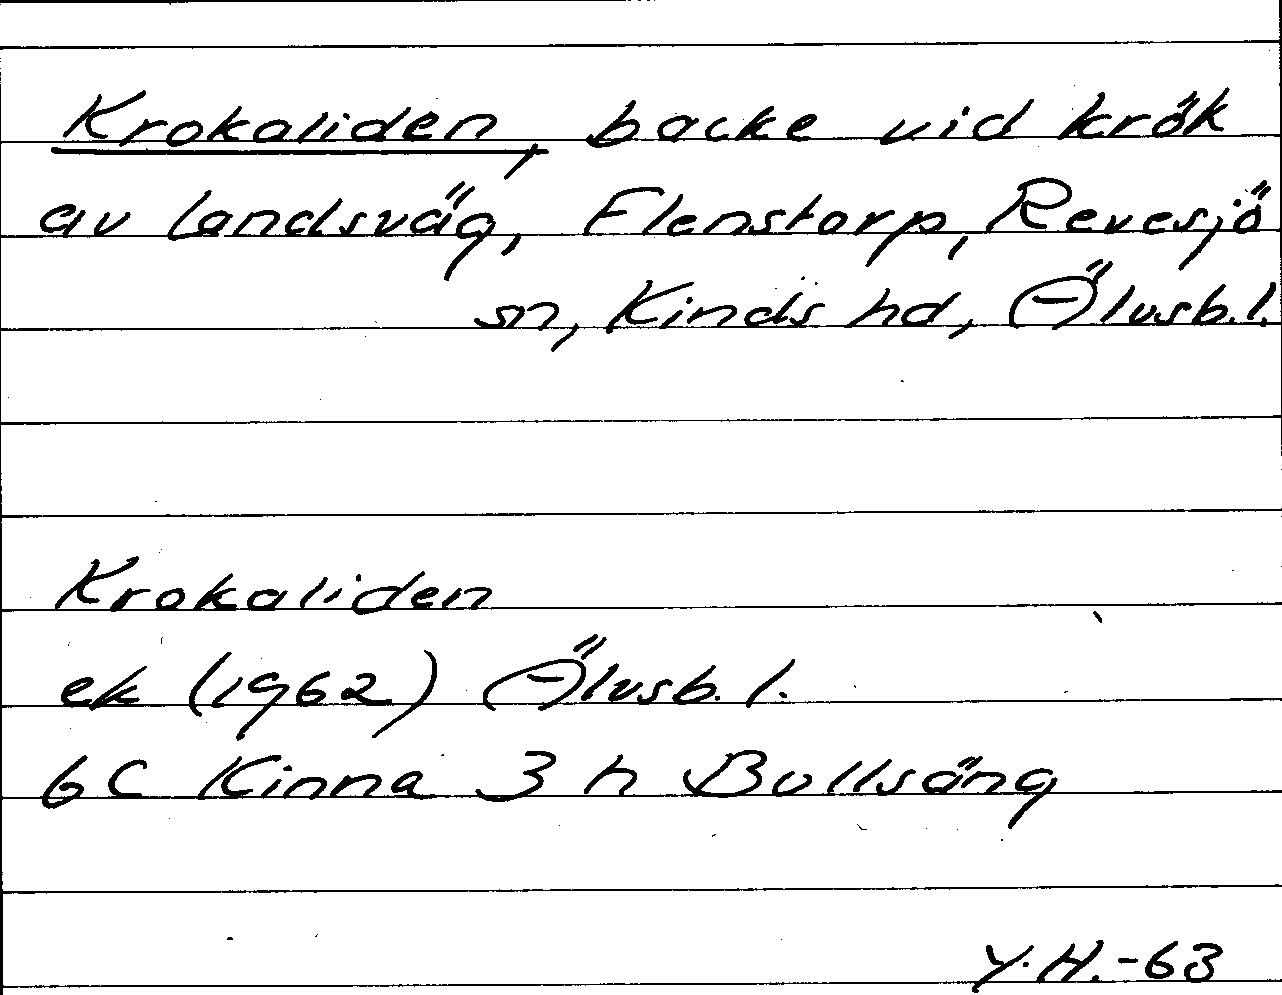 Krokaliden, backe vid krök
av landsväg, Flenstorp, Revesjö
sn, Kinds hd, Älvsb. l.
Krokaliden
ek (1962) Älvsb. l.
6 C Kinna 3 h Bullsäng
Y.H.-63